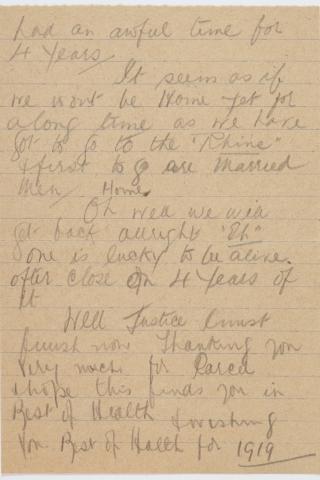 had an awful time for
4 years/
It seems as if
we wont be Home yet for
a long time as we have
got to go to the "Rhine"
& first to go are Married
Men/ Home.
Oh well we will
get back allright "Eh"
one is lucky to be alive.
after close on 4 years of
it
Well Justice I must
finish now Thanking you
very much for Parcel
& hope this finds you in
Best of Health & wishing
you Best of Health for 1919